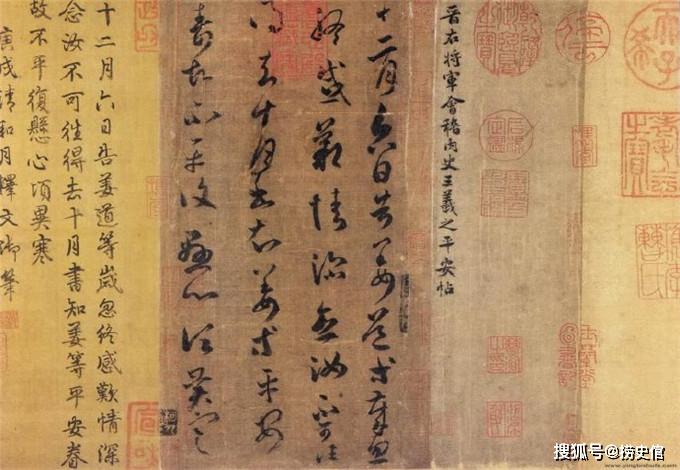 晉右將軍會稽内史王羲之平安帖
十二月六日告姜道等歲忽
終感歎情深念汝不可往
得去十月書知姜等平安
眷故不平復懸心頃異寒
十二月六日告姜道等歲忽終感歎情深
念汝不可往得去十月書知姜等平安眷
故不平復懸心頃異寒
庚戌清和月釋文御筆
搜狐号@捞史馆
www.yingbishufa.com